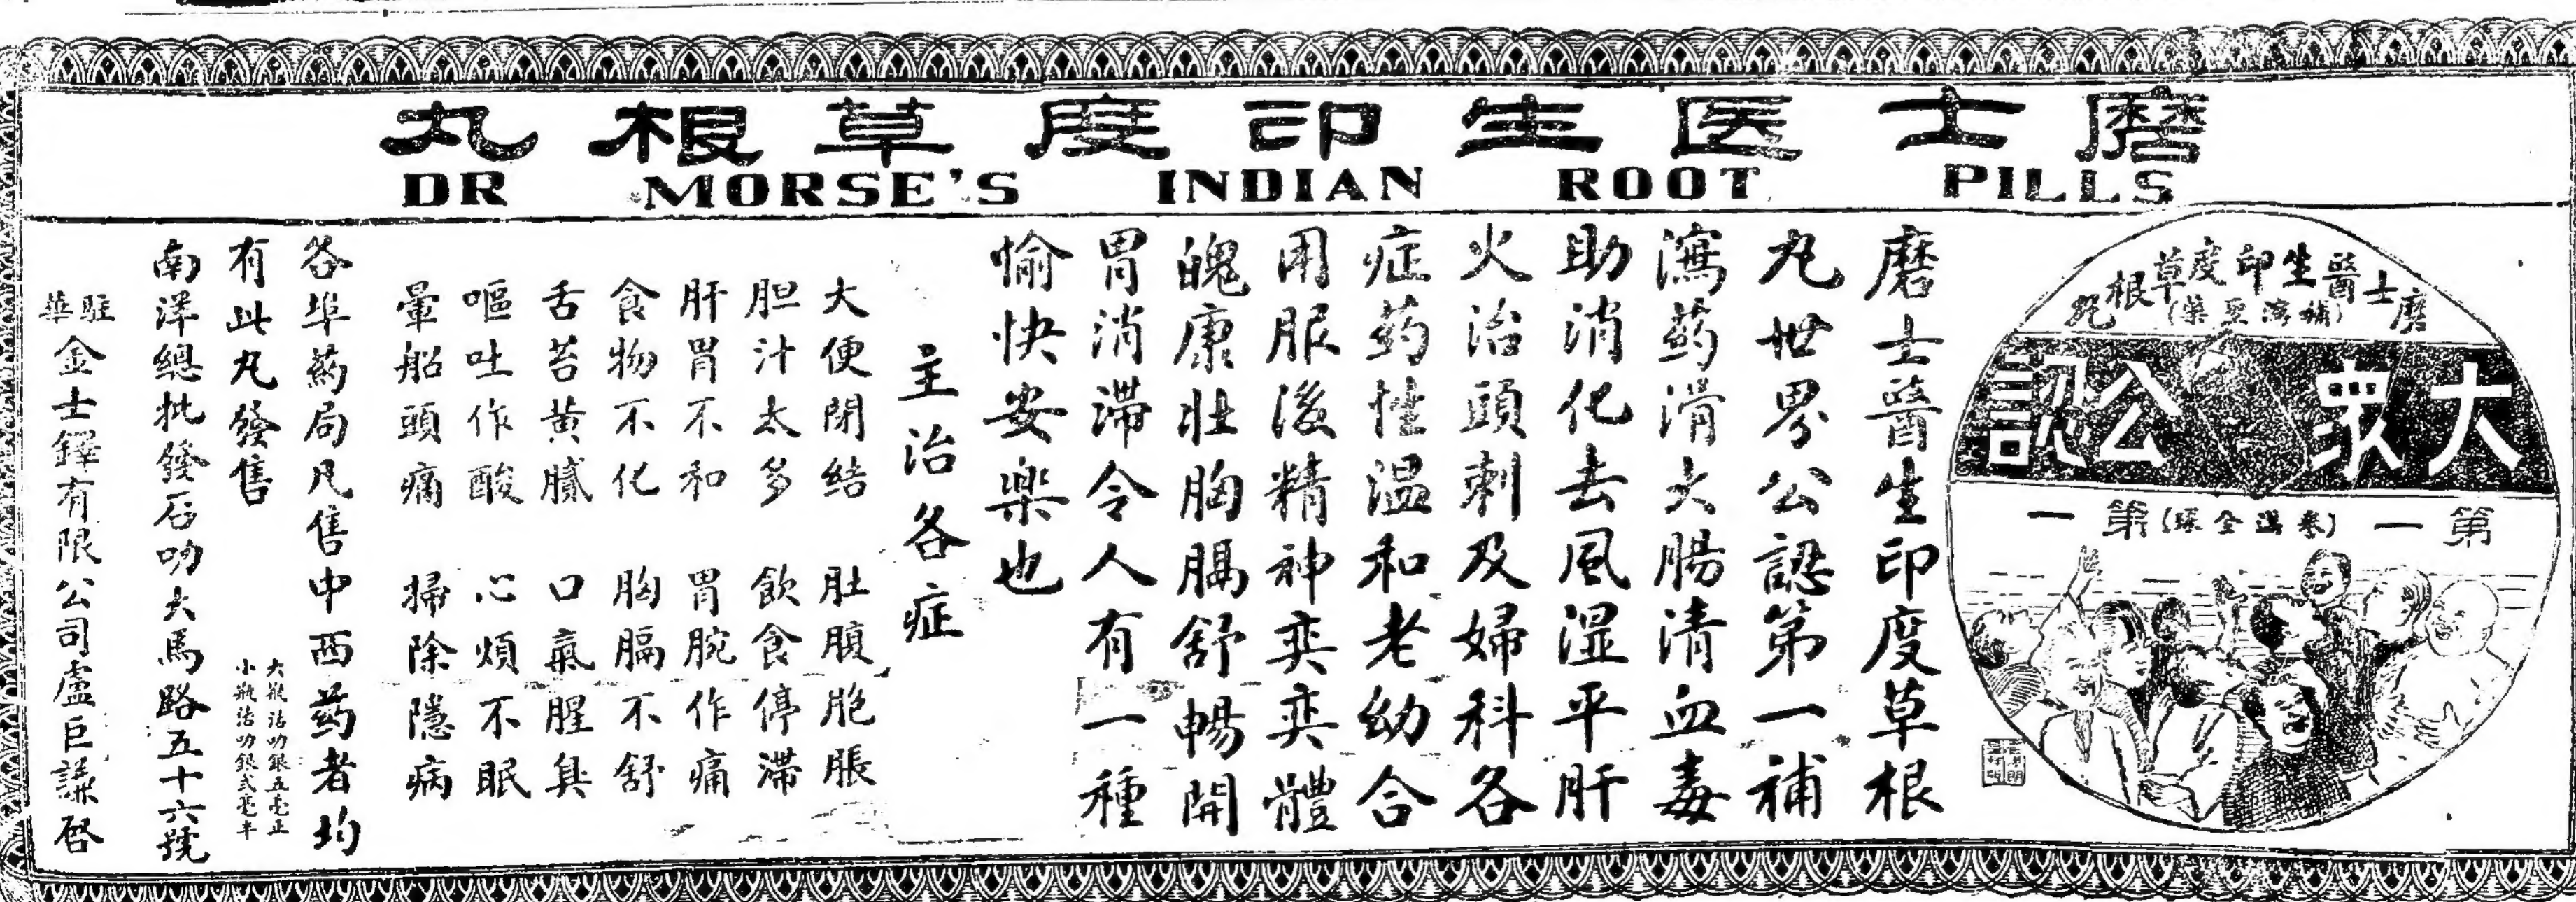 磨士医生印度草根丸
DR MORSE'S INDIAN ROOT PILLS
磨士醫生印度草根丸
(補瀉聖藥)
大眾公認
第一 第一
磨士醫生印度草根
丸世界公認第一補
瀉药滑大腸清血毒
助消化去風湿平肝
火治頭刺及婦科各
症药性温和老幼合
用服後精神奕奕體
魄康壯胸膈舒暢開
胃消滯令人有一種
愉快安楽也
主治各症
大便閉結 肚腹胞脹
胆汁太多 飲食停滯
肝胃不和 胃腕作痛
食物不化 胸膈不舒
舌苔黄膩 口氣腥臭
嘔吐作酸 心煩不眠
暈船頭痛 掃除隱病
各埠药局凡售中西药者均
有此丸發售
大瓶沽叻銀五毫正
小瓶沽叻銀弍毫半
南洋總批發石叻大馬路五十六號
駐華金士鐸有限公司盧巨謙啓